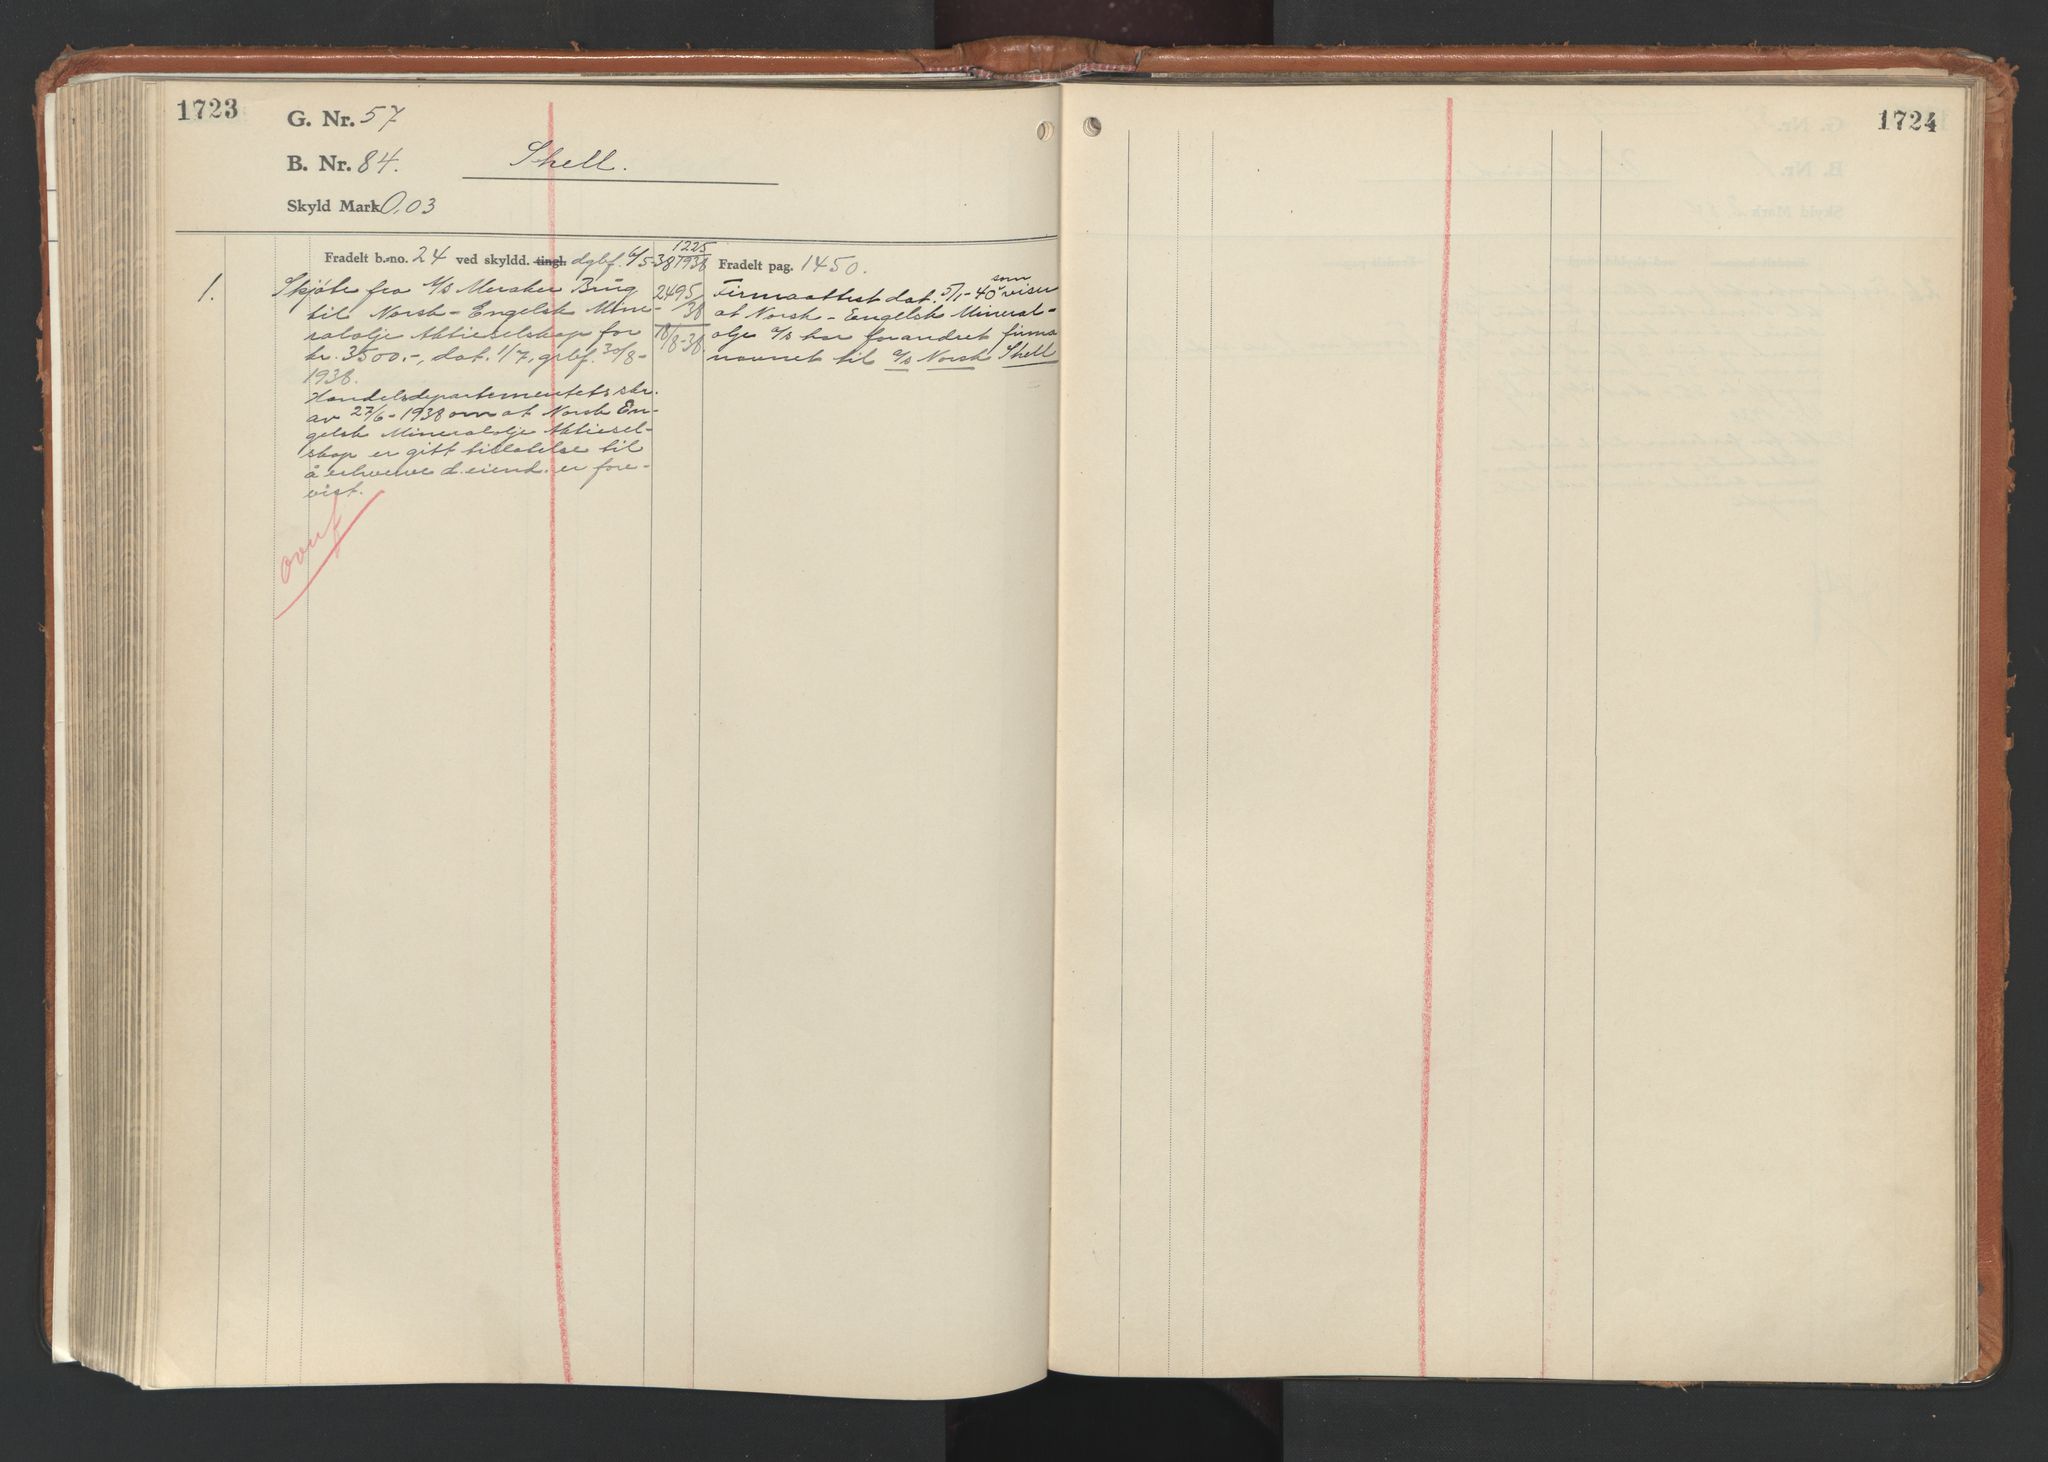 1723
G. Nr. 57
B. Nr. 84. Shell.
Skyld Mark 0,03
Fradelt b.-no. 24 ved skyldd. tingl. dgbf. 6/5-38 1225/1938 Fradelt pag. 1450.
1. Skjøte fra A/S Meraker Brug
til Norsk-Engelsk Mine-
ralolje Aktieselskap for
kr. 3500.-, dat. 1/7, grbf. 30/8-
1938.
2495/38
18/8-38
Handelsdepartementets skr.
av 27/6-1938 om at Norsk En-
gelsk Mineralolje Aktiesel-
skap er gitt tillatelse til
å erhverve d. eiend. er fore-
vist.
overf
Firmaattest dat. 5/1-40 som viser
at Norsk-Engelsk Mineral-
olje A/S har forandret firma
navnet til A/S Norsk Shell
1724